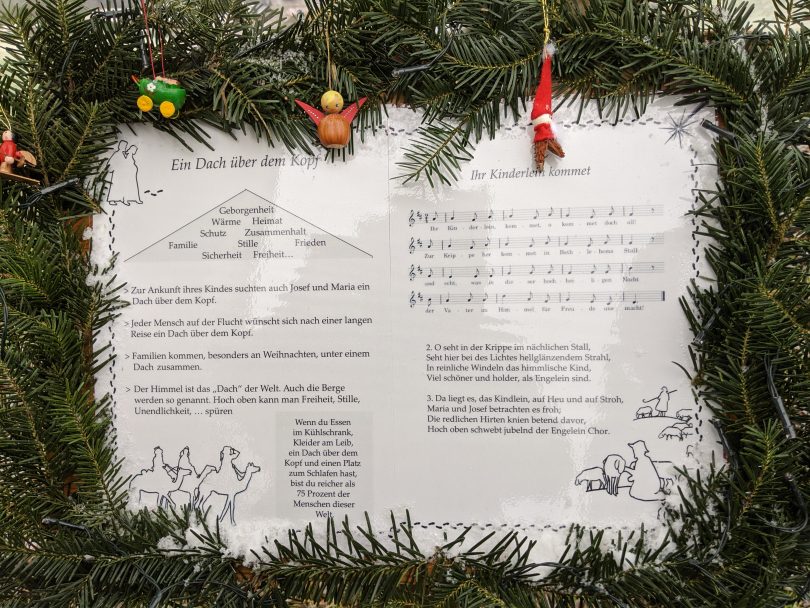 Ein Dach über dem Kopf
Geborgenheit
Wärme Heimat
Schutz Zusammenhalt
Familie Stille Frieden
Sicherheit Freiheit...
> Zur Ankunft ihres Kindes suchten auch Josef und Maria ein
Dach über dem Kopf.
> Jeder Mensch auf der Flucht wünscht sich nach einer langen
Reise ein Dach über dem Kopf.
> Familien kommen, besonders an Weihnachten, unter einem
Dach zusammen.
> Der Himmel ist das „Dach" der Welt. Auch die Berge
werden so genannt. Hoch oben kann man Freiheit, Stille,
Unendlichkeit, ... spüren
Wenn du Essen
im Kühlschrank,
Kleider am Leib,
ein Dach über dem
Kopf und einen Platz
zum Schlafen hast,
bist du reicher als
75 Prozent der
Menschen dieser
Welt.
Ihr Kinderlein kommet
Ihr Kin - der - lein, kom - met, o kom - met doch all!
Zur Krip - pe her kom - met in Beth - le - hems Stall
und seht, was in die - ser hoch - hei - li - gen Nacht
der Va - ter im Him - mel für Freu - de uns macht!
2. O seht in der Krippe im nächtlichen Stall,
Seht hier bei des Lichtes hellglänzendem Strahl,
In reinliche Windeln das himmlische Kind,
Viel schöner und holder, als Engelein sind.
3. Da liegt es, das Kindlein, auf Heu und auf Stroh,
Maria und Josef betrachten es froh;
Die redlichen Hirten knien betend davor,
Hoch oben schwebt jubelnd der Engelein Chor.